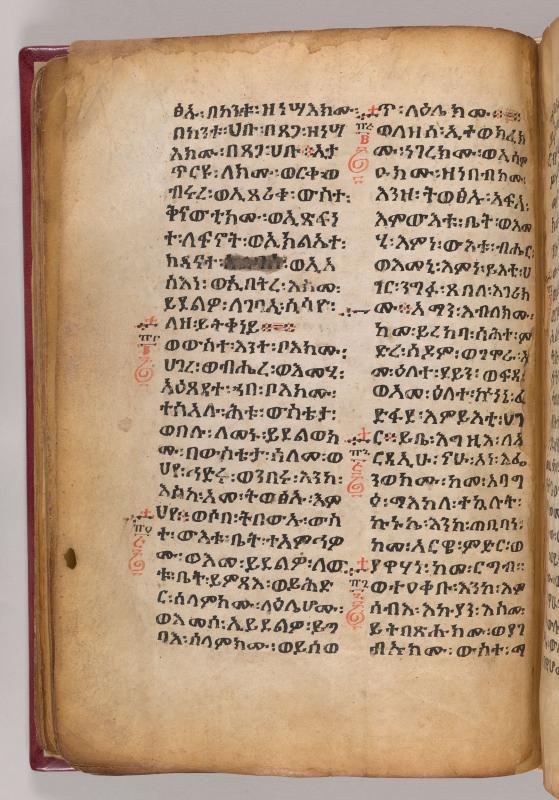 ፅኡ፡ በከንቱ፡ ዘነሣእክሙ፡
በከንቱ፡ ሀቡ፡ በጸጋ፡ ዘነሣ
እክሙ፡ በጸጋ፡ ሀቡ፡ ኢታ
ጥርዩ፡ ለክሙ፡ ወርቀ፡ ወ
ብሩረ፡ ወኢጸሪቀ፡ ውስተ፡
ቅናውቲክሙ፡ ወኢጽፋነ
ተ፡ ለፍኖት፡ ወኢክልኤተ፡
ክዳናተ፡ ወኢአ
ስእነ፡ ወኢበትረ፡ እስመ፡
ይደልዎ፡ ለገባኢ፡ ሲሳዩ፡
ለዘ፡ ይትቀነይ።
ወውስተ፡ እንተ፡ ቦእክሙ፡
ሀገረ፡ ወብሔረ፡ ወእመሂ፡
አዕጻዳተ፡ ኀበ፡ ቦእክሙ፡
ተስእሉ፡ ሕቱ፡ ውስቴታ፡
ወበሉ፡ ለመኑ፡ ይደልወክ
ሙ፡ በውስቴታ፡ ሰላመ፡ ወ
ህየ፡ ኅድሩ፡ ወንበሩ፡ እንከ፡
እስከ፡ አመ፡ ትወፅኡ፡ እም
ህየ። ወሶበ፡ ትበውኡ፡ ውስ
ተ፡ ውእቱ፡ ቤት፡ ተአምኅዎ
ሙ፡ ወእመ፡ ይደልዎ፡ ለው
ቱ፡ ቤት፡ ይምጻእ፡ ወይኅድ
ር፡ ሰላምክሙ፡ ላዕሌሆሙ፡
ወእመሰ፡ ኢይደልዎ፡ ይግ
ባእ፡ ሰላምክሙ፡ ወይሰወ
ጥ፡ ላዕሌክሙ።
ወለዘሰ፡ ኢተወክፈክ
ሙ፡ ነገረክሙ፡ ወኢሰም
ዑክሙ፡ ዘነበብክሙ፡
እንዘ፡ ትወፅኡ፡ አፍአ፡
እምውእቱ፡ ቤት፡ ወእመ
ሂ፡ እምነ፡ ውእቱ፡ ብሔር፡
ወእመኒ፡ እምነ፡ ይእቲ፡ ሀ
ገር፡ ንግፉ፡ ጸበለ፡ እገሪክ
ሙ። አማን፡ እብለክሙ፡
ከመ፡ ይረክባ፡ ስሕተ፡ ም
ድረ፡ ሰዶም፡ ወገሞራ፡ አ
መ፡ ዕለተ፡ ደይን፡ ወፍዳ፡
ወአመ፡ ዕለተ፡ ኵነኔ፡ ፈ
ድፋደ፡ እምይእቲ፡ ሀገ
ር። ይቤ፡ እግዚእ፡ ለአ
ርዳኢሁ፡ ነዋ፡ አነ፡ እፌ
ንወክሙ፡ ከመ፡ አባግ
ዕ፡ ማእከለ፡ ተኲላት፡
ኩኑኬ፡ እንከ፡ ጠቢባነ፡
ከመ፡ አርዌ፡ ምድር፡ ወ
የዋሃነ፡ ከመ፡ ርግብ።
ወተዐቀቡ፡ እንከ፡ እም
ሰብእ፡ እኩያን፡ እስመ፡
ይትበጽሑክሙ፡ ወያገ
ብኡክሙ፡ ውስተ፡ ማ